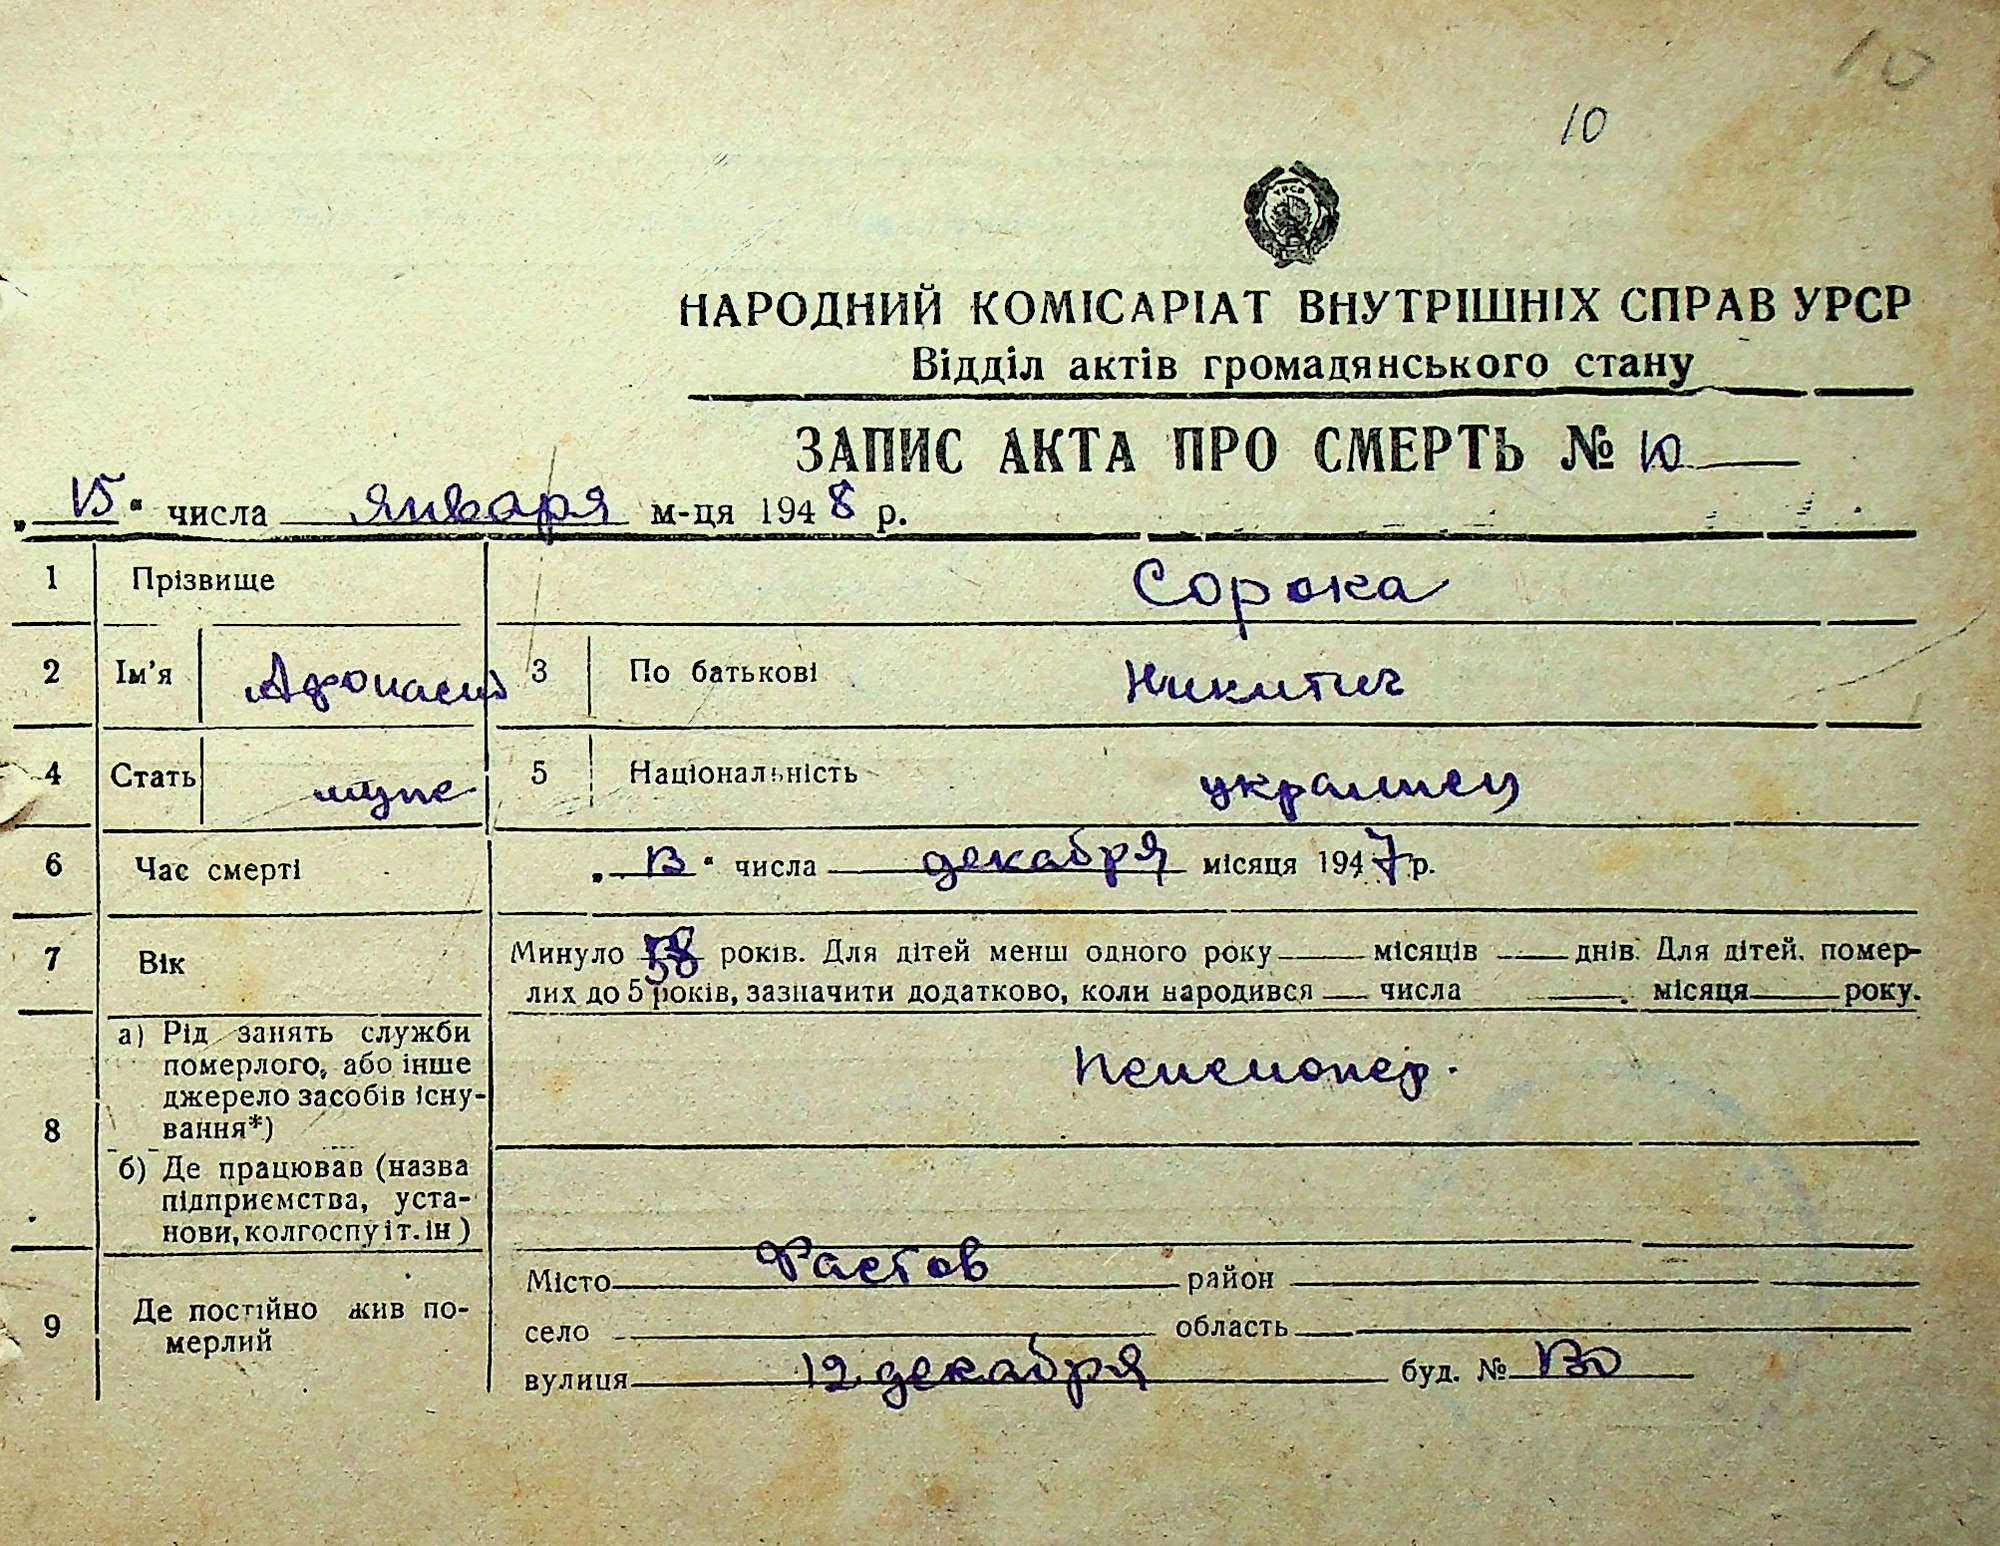 10
10
УРСР
НАРОДНИЙ КОМІСАРІАТ ВНУТРІШНІХ СПРАВ УРСР
Відділ актів громадянського стану
ЗАПИС АКТА ПРО СМЕРТЬ № 10
„15“ числа января м-ця 1948 р.
1 Прізвище Сорока
2 Ім'я Афонасий 3 По батькові Никитич
4 Стать муж 5 Національність украинец
6 Час смерті „13“ числа декабря місяця 1947 р.
7 Вік Минуло 58 років. Для дітей менш одного року місяців днів. Для дітей, помер-
лих до 5 років, зазначити додатково, коли народився числа місяця року.
8 а) Рід занять служби
померлого, або інше
джерело засобів існу-
вання*)
Пенсионер.
б) Де працював (назва
підприємства, уста-
нови, колгоспу і т. ін)
9 Де постійно жив по-
мерлий
Місто Фастов район
село область
вулиця 12 декабря буд. № 130